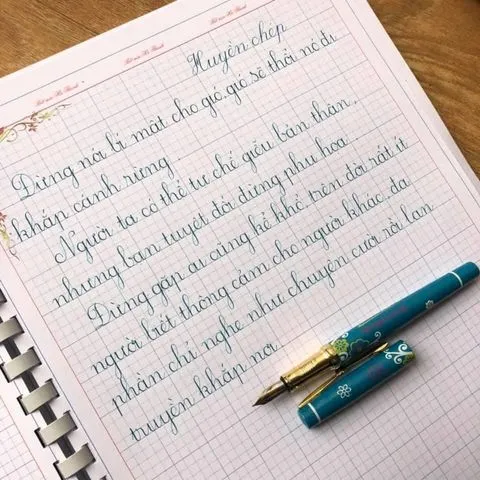 Huyền chép
Đừng nói bí mật cho gió, gió sẽ thổi nó đi
khắp cánh rừng.
Người ta có thể tự chế giễu bản thân,
nhưng bạn tuyệt đối đừng phụ họa.
Đừng gặp ai cũng kể khổ trên đời rất ít
người biết thông cảm cho người khác, đa
phần chỉ nghe như chuyện cười rồi lan
truyền khắp nơi